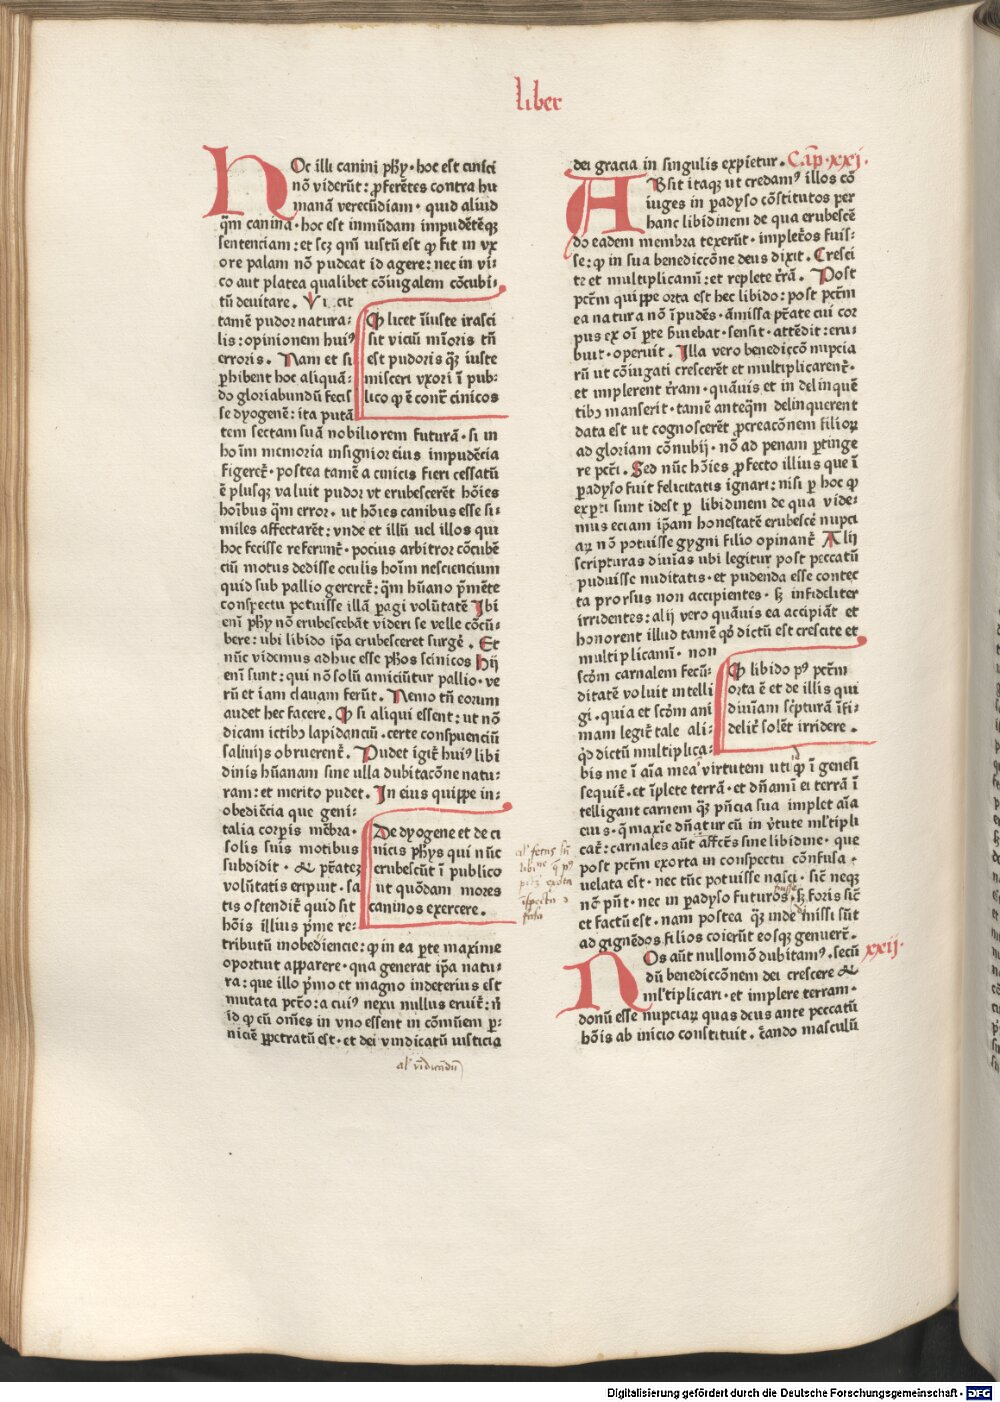 liber
HOc illi canini phỹ · hoc est cinici
nō viderūt : proferētes contra hu
manā verecūdiam · quid aliud
q̄m canina · hoc est inmūdam impudētēqȝ
sententiam : et scȝ qm̄ iustū est qꝫ fit in vx
ore palam nō pudeat id agere : nec in vi-
co aut platea qualibet cōiugalem cōcubi-
tū deuitare . Vicit
tamē pudor natura-
lis : opinionem huiꝰ
erroris . Nam et si
ꝑhibent hoc aliquā-
do gloriabundū fecis
se dyogenē : ita putā
tem sectam suā nobiliorem futurā · si in
hoīm memoria insignior eius impudēcia
figeret̃ · postea tamē a cinicis fieri cessatū
ē plusqȝ valuit pudor vt erubescerēt hōies
hoībus q̄m error . ut hōies canibus esse si-
miles affectarēt : vnde et illū uel illos qui
hoc fecisse referunt̃ · pocius arbitror cōcūbē
ciū motus dedisse oculis hoīm nesciencium
quid sub pallio gereret̃ : q̄m hūano p̄mēte
conspectu potuisse illā ꝑagi volūtatē Ibi
enī phỹ nō erubescebāt videri se velle cōcū-
bere : ubi libido ip̄a erubesceret surgē . Et
nūc videmus adhuc esse phōs scinicos Hij
enī sunt : qui nō solū amiciūtur pallio · ve
rū et iam clauam ferūt . Nemo tn̄ eorum
audet hec facere . Qꝫ si aliqui essent : ut nō
dicam ictibꝫ lapidanciū . certe conspuenciū
saliuijs obruerent̃ . Pudet igit̃ huiꝰ libi
dinis hūanam sine ulla dubitacōne natu-
ram : et merito pudet . In eius quippe in-
obediēcia que geni-
talia corꝑis mēbra ·
solis suis motibus
subdidit · & ꝓtatez
volūtatis eripuit . sa
tis ostendit̃ quid sit
hōis illius p̄me re-
tributū inobediencie : qꝫ in ea ꝑte maxime
oportuit apparere · qua generat ip̄a natu-
ra : que illo p̄mo et magno indeterius est
mutata pctō : a cuiꝰ nexu nullus eruit̃ : n̄
id qꝫ cū om̄es in vno essent in cōmūem ꝑ-
niciē ꝑpetratū est · et dei vindicatū iusticia
Qꝫ licet īiuste irasci
sit viciū mīoris tn̄
est pudoris qȝ iuste
misceri vxori ī pub-
lico qꝫ ē contͣ cinicos
De dyogene et de ci
nicis phỹs qui nūc
erubescūt ī publico
ut quōdam mores
caninos exercere .
al' vīdicandū
dei gracia in singulis expietur . Cap · xxj ·
ABsit itaqȝ ut credamꝰ illos cō
iuges in ꝑadyso cōstitutos per
hanc libidinem de qua erubescē
do eadem membra texerūt · impletr̄os fuis-
se : qꝫ in sua benediccōne deus dixit . Cresci
te et multiplicamī : et replete tr̄ā . Post
pctm̄ quippe orta est hec libido : post pctm̄
ea natura nō īpudēs · āmissa ꝓtate cui cor
pus ex oī ꝑte ẜuiebat · sensit · attēdit : eru-
buit · operuit . Illa vero benediccō nupcia
rū ut cōiugati crescerēt et multiplicarent̃ ·
et implerent tr̄ram · quāuis et in delinquē
tibꝫ manserit · tamē anteq̄m delinquerent
data est ut cognoscerēt ꝓcreacōnem filioꝝ
ad gloriam cōnubij · nō ad penam ꝑtinge
re pctī . Sed nūc hōies ꝓfecto illius que ī
ꝑadyso fuit felicitatis ignari : nisi ꝑ hoc qꝫ
exꝑti sunt idest ꝑ libidinem de qua vide-
mus eciam ip̄am honestatē erubescē nupci
aꝝ nō potuisse gygni filio opinant̃ Alij
scripturas diuīas ubi legitur post peccatū
puduisse nuditatis · et pudenda esse contec
ta prorsus non accipientes · sȝ infideliter
irridentes : alij vero quāuis ea accipiāt et
honorent illud tamē qꝫ dictū est crescite et
multiplicamī · non
scd̄m carnalem fecū-
ditatē voluit intelli
gi · quia et scd̄m ani
mam legit̃ tale ali-
qd̄ dictū multiplica-
bis me ī aīa mea virtutem uti qꝫ ī genesi
sequit̃ · et īplete terrā · et dn̄amī ei terrā ī
telligant carnem qȝ pn̄cia sua implet aīa
eius · q̄ maxīe dn̄atur cū in v̄tute ml'tipli
cat̃ : carnales aūt affcūs sine libidine · que
post pctm̄ exorta in conspectu confusa ·
uelata est · nec tūc potuisse nasci · sic̄ neqȝ
nō pn̄t · nec in ꝑadyso futuros · sȝ foris sic̄
et factū est . nam postea qȝ inde missi sūt
ad gignēdos filios coierūt eosqȝ genuert̃ .
Qꝫ libido pꝰ pctm̄
orta ē et de illis qui
diuīam sc̄pturā īfi-
delit̃ solēt irridere .
al' fetus sn̄
libīne q̄ pꝰ
pctȝ exorta
ī conspectu
fusa
NOs aūt nullomō dubitamꝰ . secū xxij ·
dū benediccōnem dei crescere &
ml'tiplicari · et implere terram ·
donū esse nupciaꝝ quas deus ante peccatū
hōis ab inicio constituit . c̄ando masculū
Digitalisierung gefördert durch die Deutsche Forschungsgemeinschaft - DFG